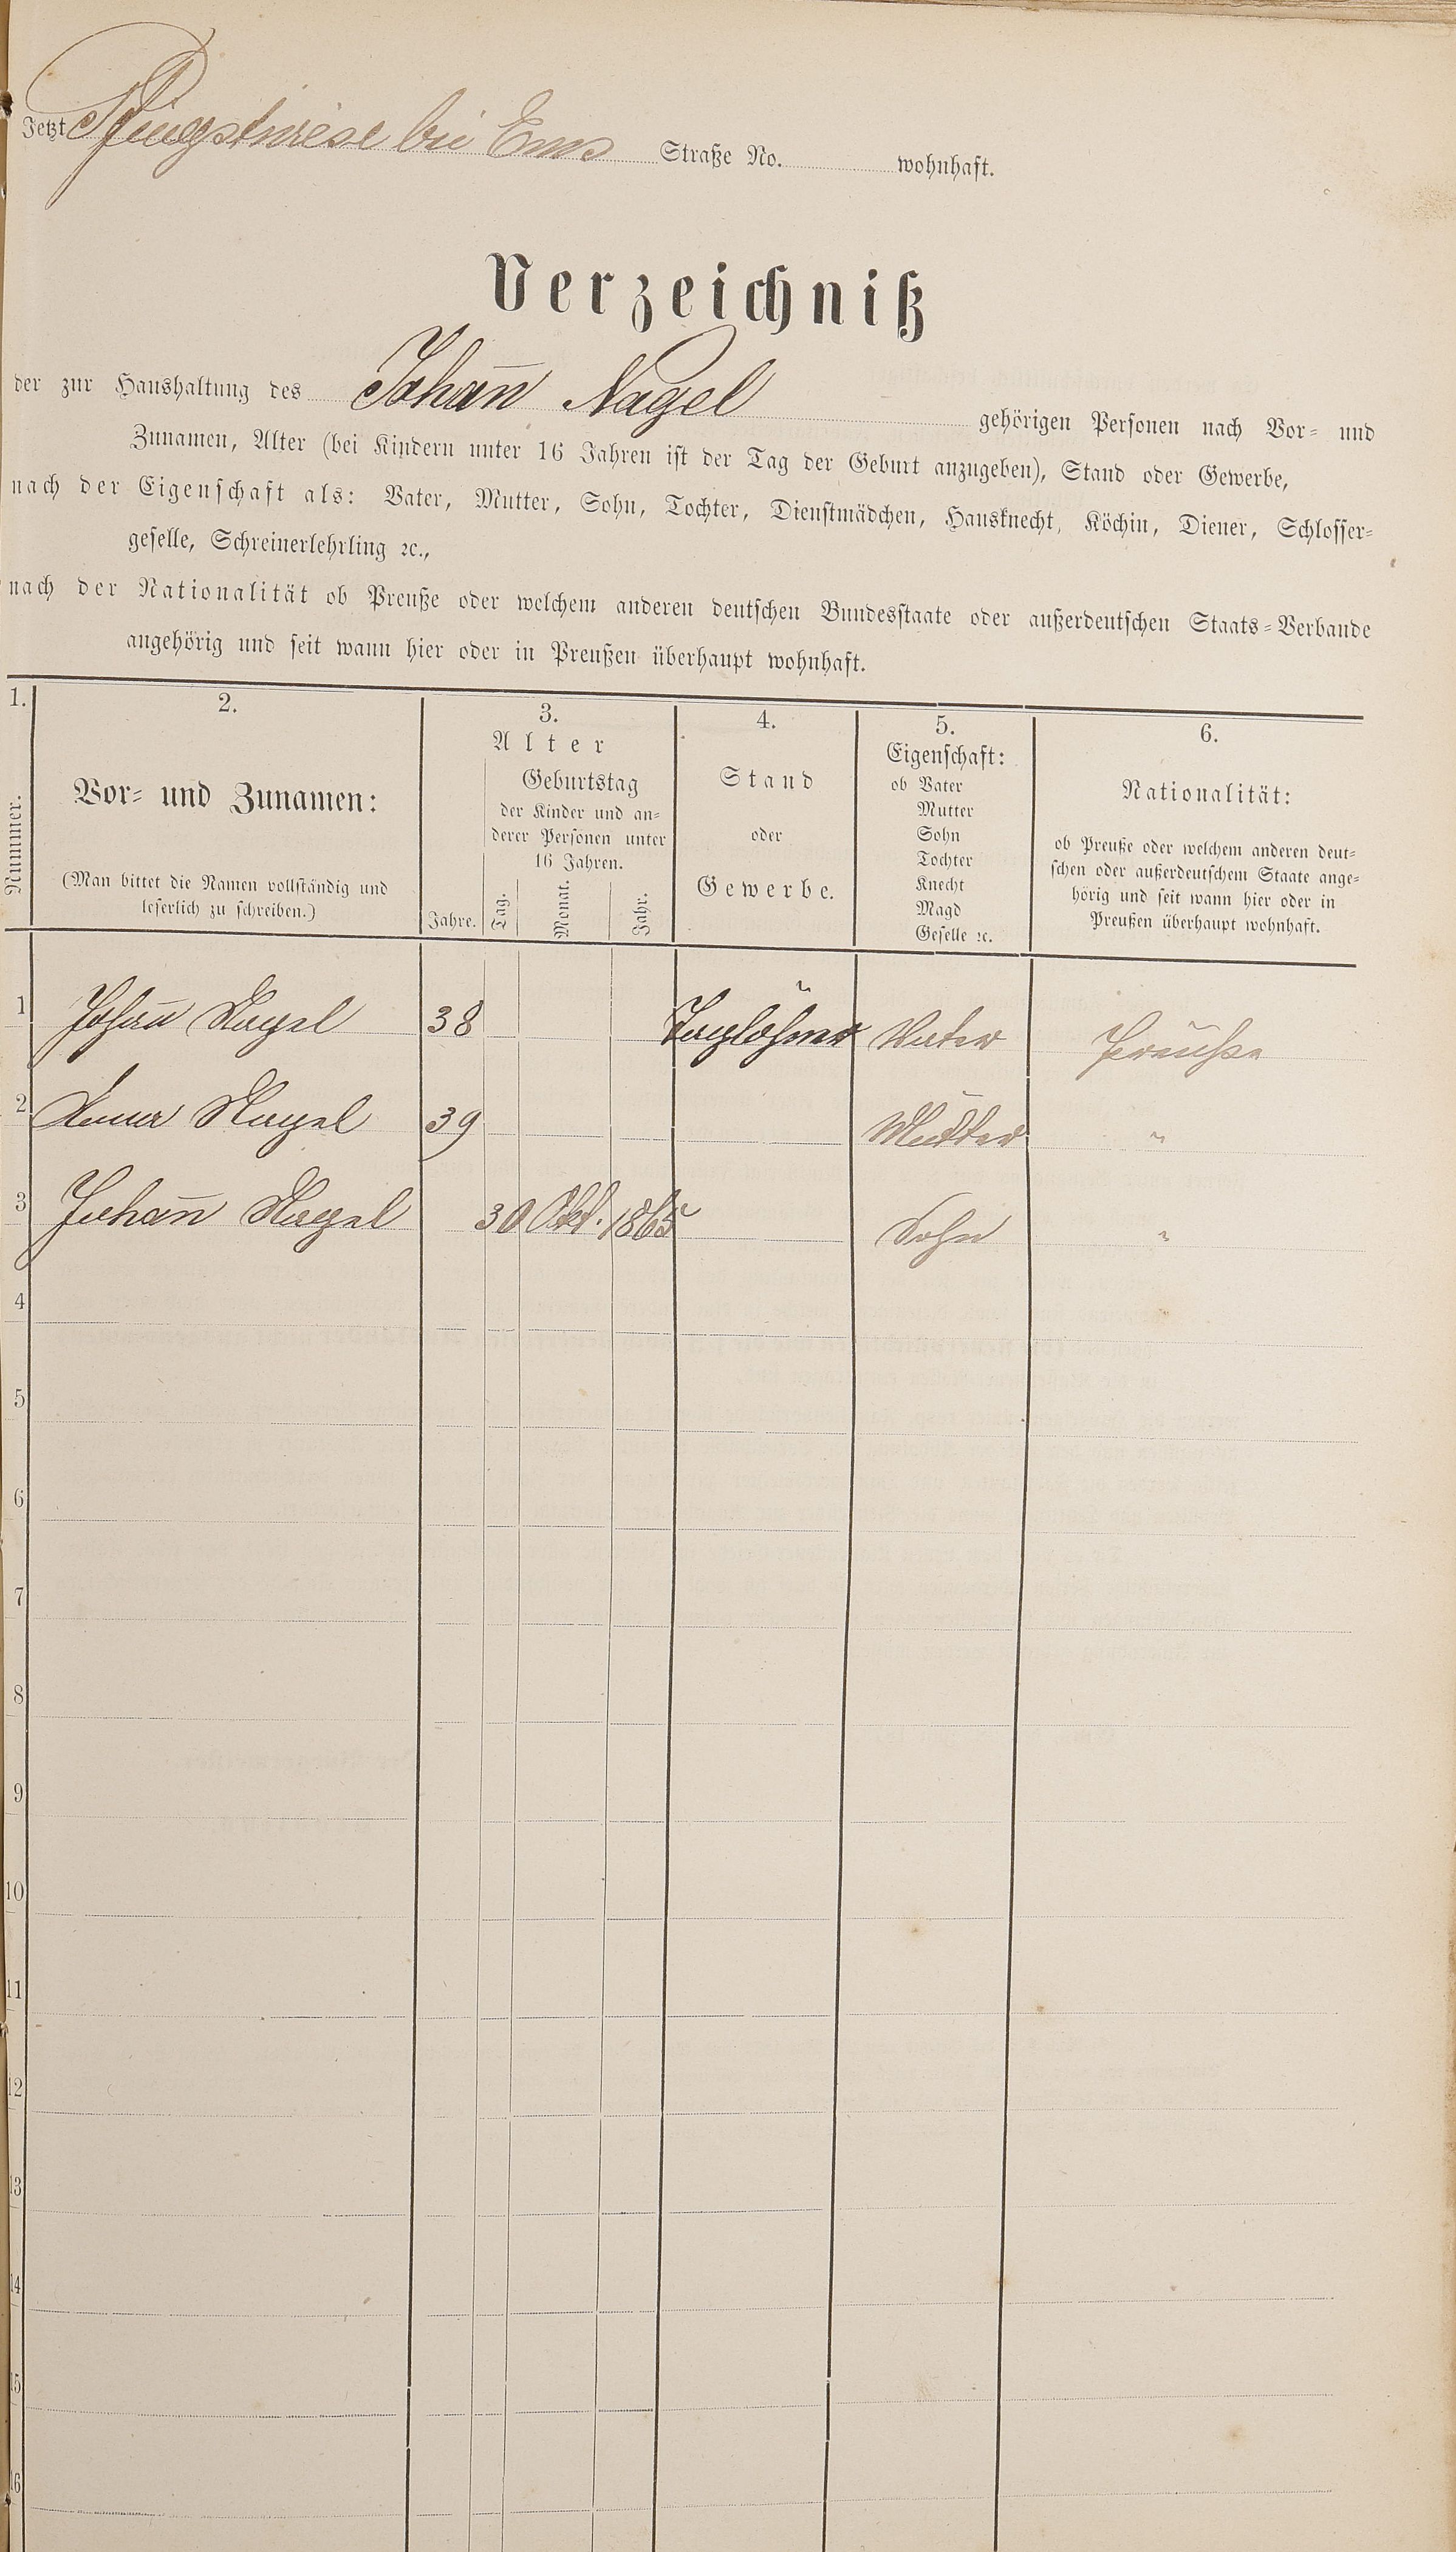 Jetzt Pfingstwiese bei Ems Straße No. wohnhaft.
Verzeichniß
der zur Haushaltung des Johan̄ Nagel gehörigen Personen nach Vor- und
Zunamen, Alter (bei Kindern unter 16 Jahren ist der Tag der Geburt anzugeben), Stand oder Gewerbe,
nach der Eigenschaft als: Vater, Mutter, Sohn, Tochter, Dienstmädchen, Hausknecht, Köchin, Diener, Schlosser-
geselle, Schreinerlehrling ꝛc.,
nach der Nationalität ob Preuße oder welchem anderen deutschen Bundesstaate oder außerdeutschen Staats-Verbande
angehörig und seit wann hier oder in Preußen überhaupt wohnhaft.
1. 2. 3. 4. 5. 6.
Nummer.
Vor- und Zunamen:
(Man bittet die Namen vollständig und
leserlich zu schreiben.)
Alter
Jahre.
Geburtstag
der Kinder und an-
derer Personen unter
16 Jahren.
Tag. Monat. Jahr.
Stand
oder
Gewerbe.
Eigenschaft:
ob Vater
Mutter
Sohn
Tochter
Knecht
Magd
Geselle ꝛc.
Nationalität:
ob Preuße oder welchem anderen deut-
schen oder außerdeutschem Staate ange-
hörig und seit wann hier oder in
Preußen überhaupt wohnhaft.
1 Johan̄ Nagel 38 Taglöhner Vater Preuße
2 Anna Nagel 39 Mutter "
3 Johan̄ Nagel 30 Okt. 1865 Sohn "
4
5
6
7
8
9
10
11
12
13
14
15
16